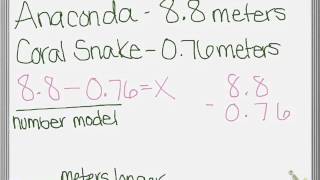 Anaconda - 8.8 meters
Coral Snake - 0.76 meters
8.8 - 0.76 = X
8.8
- 0.76
number model
meters longer